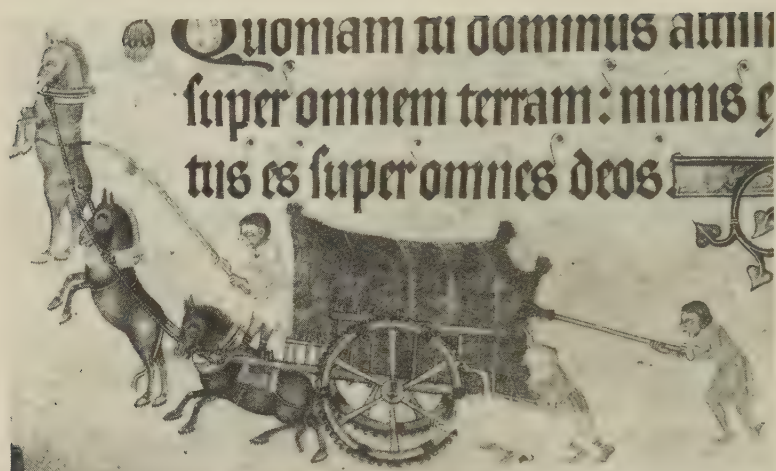 Quoniam tu dominus altiſſi
ſuper omnem terram: nimis e
tus es ſuper omnes deos.